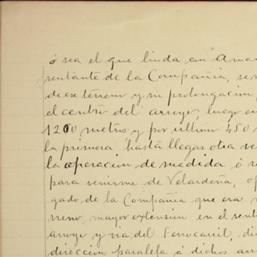 ó sea el que linda con Amad
sentante de la Compañia, se
de ese terreno y su prolongacion,
el centro del arroyo, luego
1200 metros y por ultimo 450
la primera hasta llegar otra ve
la operacion de medida ó
para reunirme de Velardeña, o
gado, de la Compañia que era
rreno, mayor extension en el sent
arroyo y via del Ferrocarril, di
direccion paralela á dichos arr